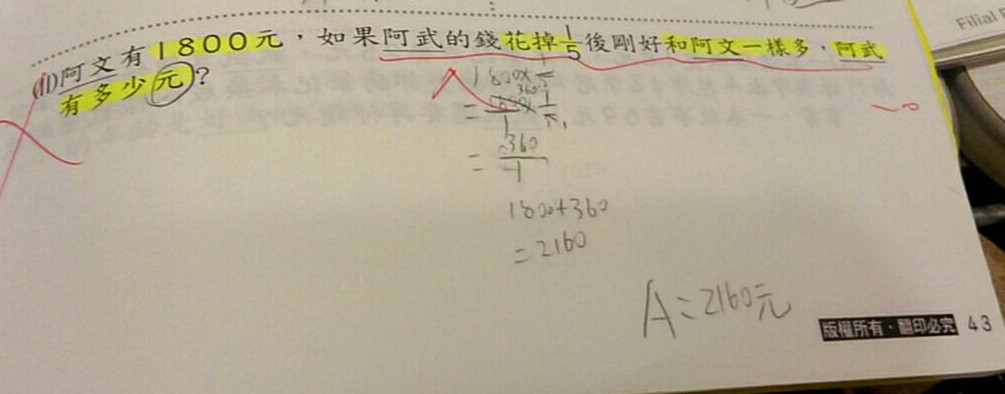 Filial
(11)阿文有1800元，如果阿武的錢花掉1/5後剛好和阿文一樣多，阿武
有多少元？
1800×1/5
360
=1800/1×1/5
=360/1
1800+360
=2160
A=2160元
版權所有・翻印必究 43